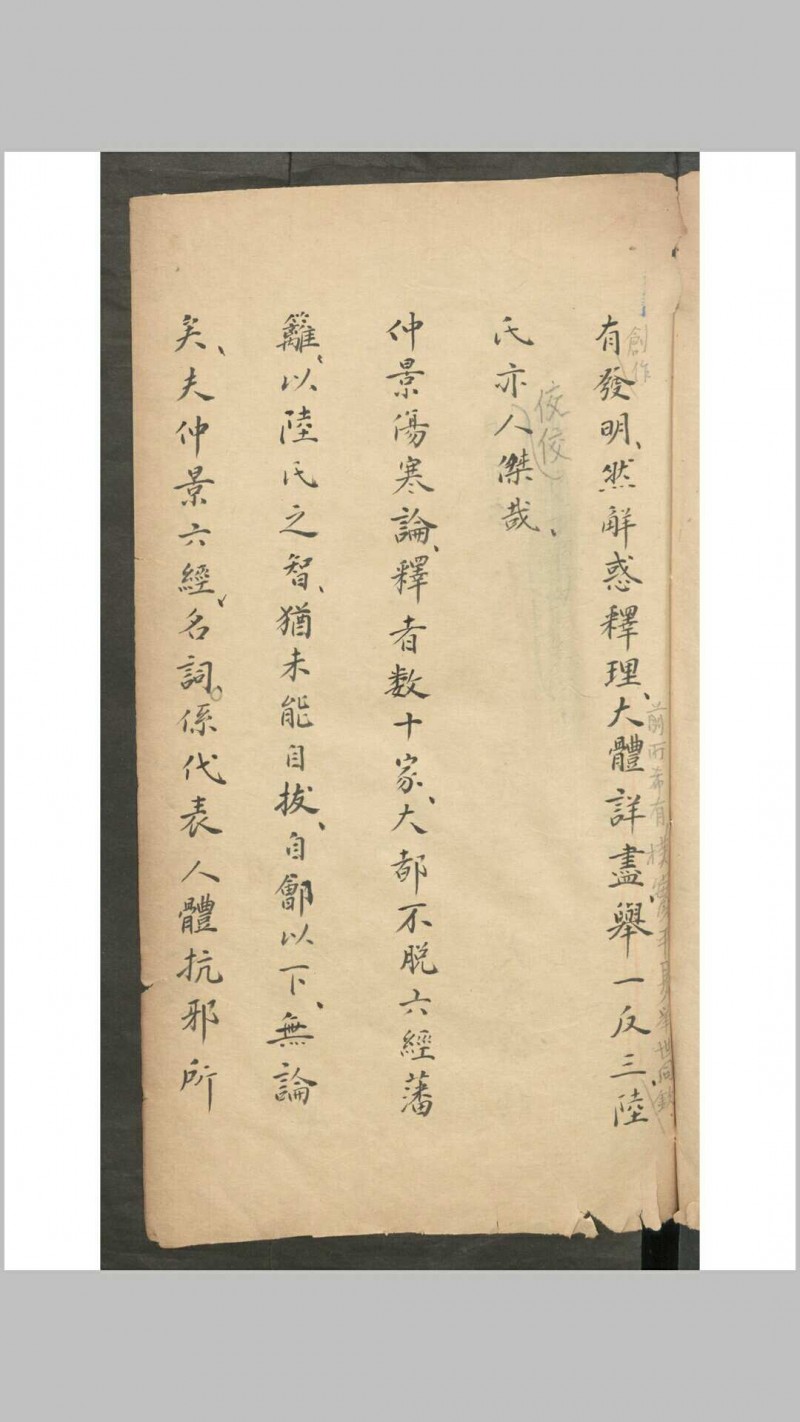 有發明、然解惑釋理、大體詳盡、舉一反三、陸
創作
前所希有
氏亦人傑哉、
佼佼
仲景傷寒論、釋者数十家、大都不脱六經藩
籬、以陸氏之智、猶未能自拔、自鄶以下、無論
矣、夫仲景六經、名詞。係代表人體抗邪所